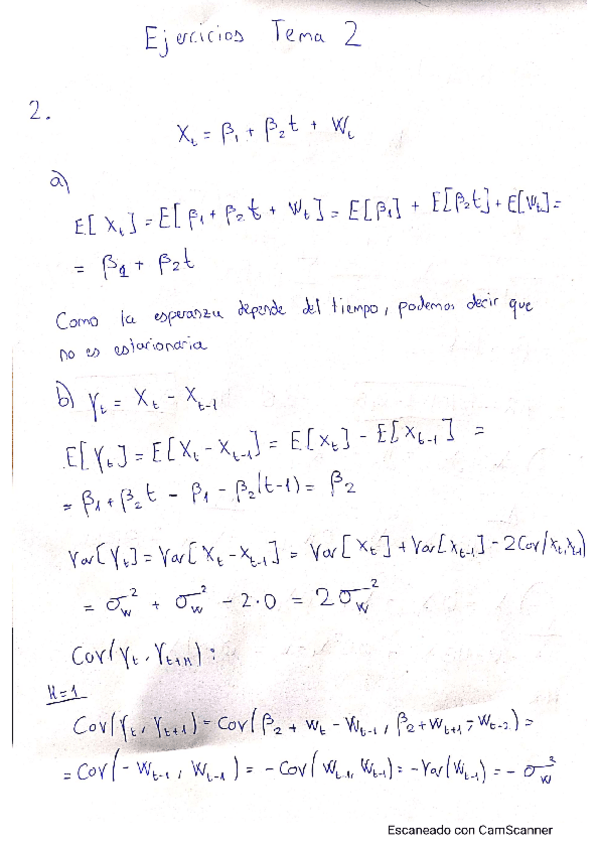 Ejercicios Tema 2
2.
X_t = β_1 + β_2 t + W_t
a)
E[X_t] = E[β_1 + β_2 t + W_t] = E[β_1] + E[β_2 t] + E[W_t] =
= β_1 + β_2 t
Como la esperanza depende del tiempo, podemos decir que
no es estacionaria
b) Y_t = X_t - X_{t-1}
E[Y_t] = E[X_t - X_{t-1}] = E[X_t] - E[X_{t-1}] =
= β_1 + β_2 t - β_1 - β_2(t-1) = β_2
Var[Y_t] = Var[X_t - X_{t-1}] = Var[X_t] + Var[X_{t-1}] - 2Cov(X_t, X_{t-1})
= σ_w^2 + σ_w^2 - 2·0 = 2σ_w^2
Cov(Y_t, Y_{t+h}):
H=1
Cov(Y_t, Y_{t+1}) = Cov(β_2 + W_t - W_{t-1}, β_2 + W_{t+1} - W_{t-2}) =
= Cov(-W_{t-1}, W_{t-1}) = -Cov(W_{t-1}, W_{t-1}) = -Var(W_{t-1}) = -σ_w^2
Escaneado con CamScanner